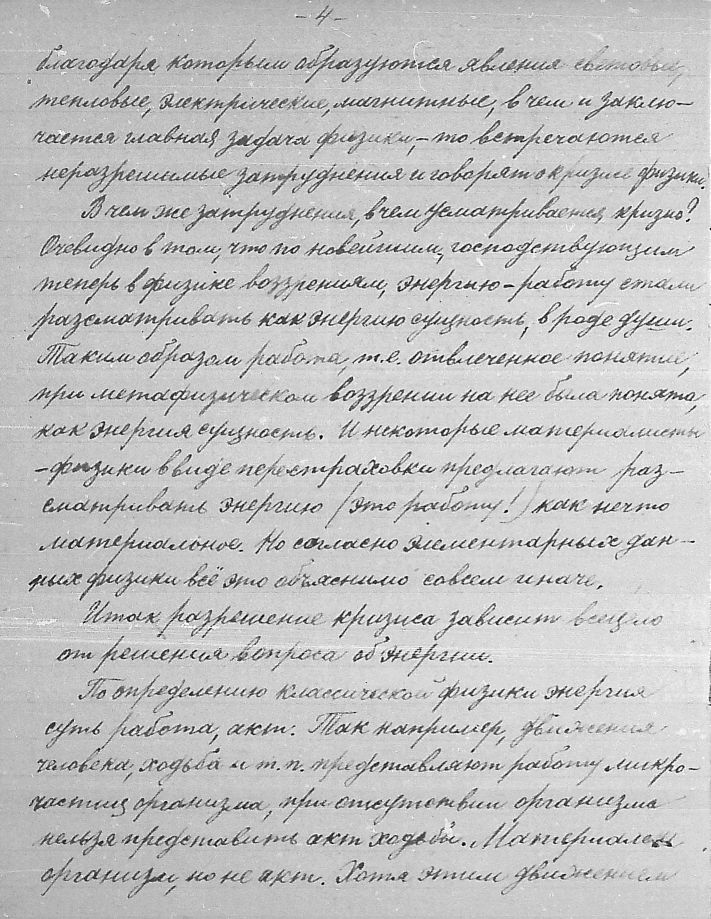 - 4 -
благодаря которым образуются явления световые,
тепловые, электрические, магнитные, в чем и заклю-
чается главная задача физики, - то встречаются
неразрешимые затруднения и говорят о кризисе физики.
В чем же затруднения, в чем усматривается кризис?
Очевидно в том, что по новейшим, господствующим
теперь в физике воззрениям, энергию - работу стали
разсматривать как энергию сущность, в роде души.
Таким образом работа, т.е. отвлеченное понятие,
при метафизическом воззрении на нее была понята,
как энергия сущность. И некоторые материалисты
-физики в виде перестраховки предлагают раз-
сматривать энергию (это работу!) как нечто
материальное. Но согласно элементарных дан-
ных физики всё это объяснимо совсем иначе.
Итак разрешение кризиса зависит всецело
от решения вопроса об энергии.
По определению классической физики энергия
суть работа, акт. Так например, движения
человека, ходьба и т.п. представляют работу микро-
частиц организма, при отсутствии организма
нельзя представить акт ходьбы. Материален
организм, но не акт. Хотя этим движением